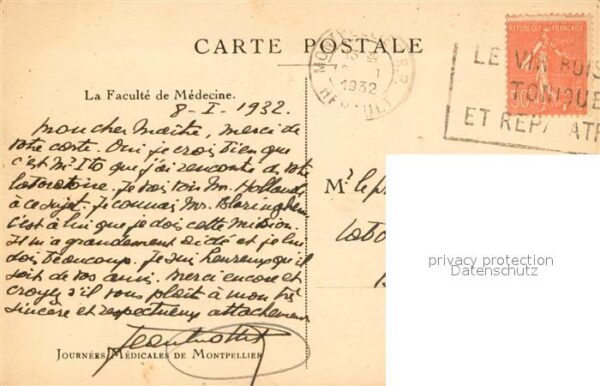 CARTE POSTALE
MONTPELLIER
1932
HERAULT
REPUBLIQUE FRANÇAISE
50
LE VIN BOIS
TONIQUE
ET REPARATE
La Faculté de Médecine.
8-I-1932.
mon cher Maître, merci de
votre carte. Oui je crois bien que
c'est Mr Ito que j'ai rencontré de votre
laboratoire. Je vais voir Mr. Holland
à ce sujet. Je connais Mr. Blaringhem
c'est à lui que je dois cette mission.
Il m'a grandement aidé et je lui
dois beaucoup. Je suis heureux qu'il
soit de vos amis. Merci encore et
croyez s'il vous plaît à mon très
sincère et respectueux attachement
Jean
Mr le pr
Labo
privacy protection
Datenschutz
JOURNÉES MÉDICALES DE MONTPELLIER